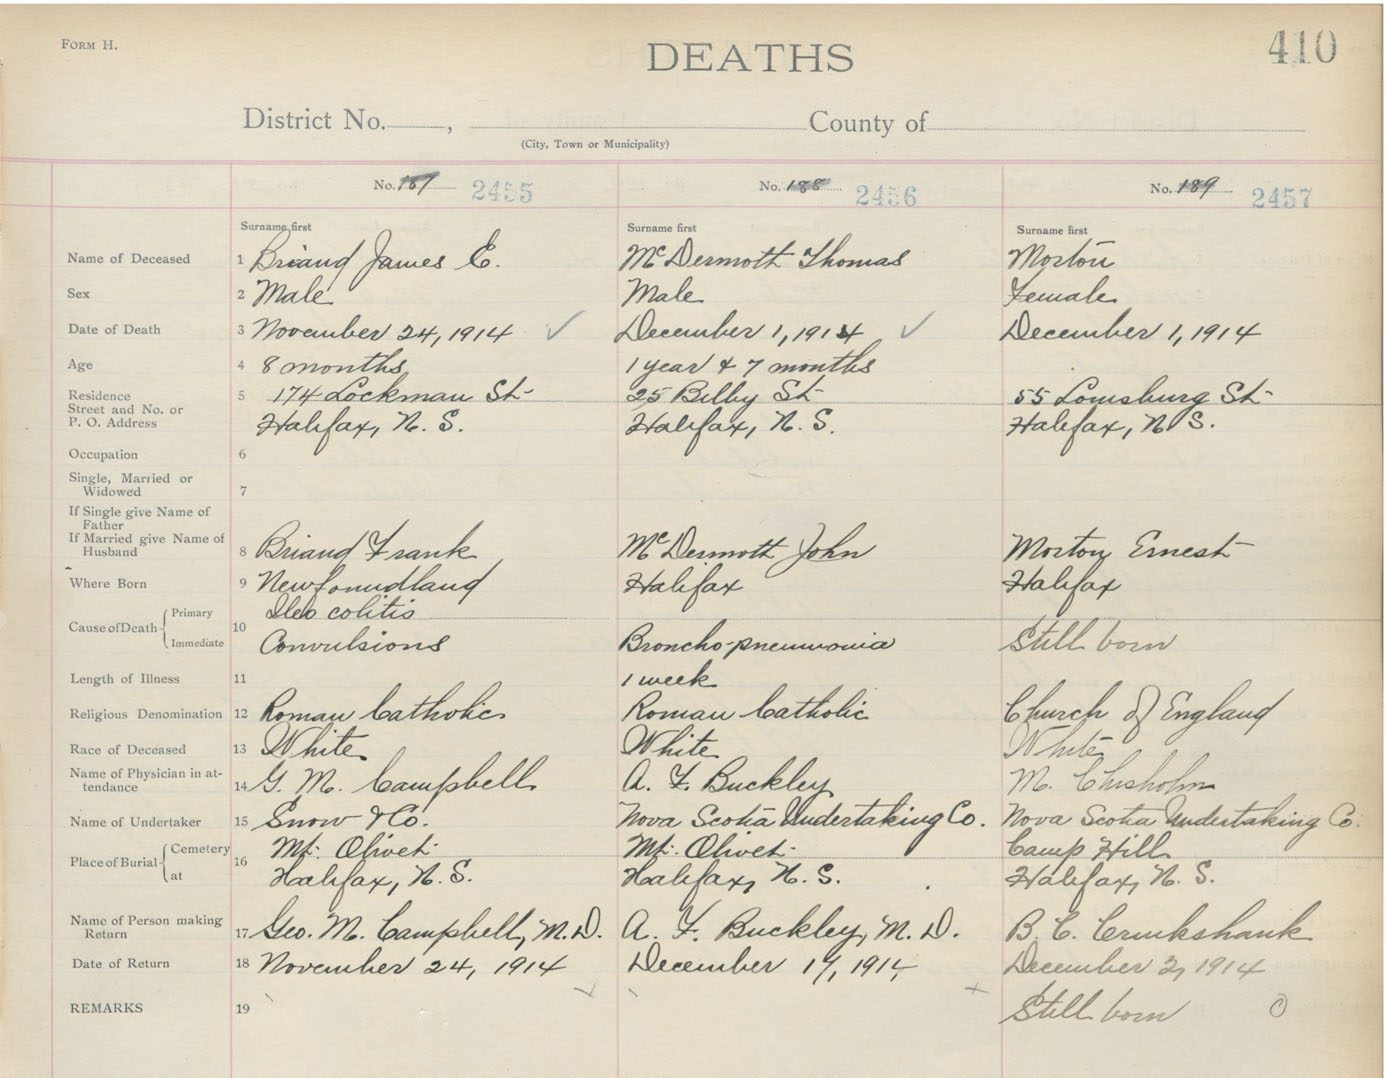 FORM H.
DEATHS
410
District No. , County of
(City, Town or Municipality)
No. 187 2455 No. 188 2456 No. 189 2457
Surname first Surname first Surname first
Name of Deceased 1 Briand James E. McDermoth Thomas Morton
Sex 2 Male Male Female
Date of Death 3 November 24, 1914 ✓ December 1, 1914 ✓ December 1, 1914
Age 4 8 months 1 year & 7 months
Residence 5 174 Lockman St 25 Bilby St 55 Louisburg St
Street and No. or
P. O. Address Halifax, N. S. Halifax, N. S. Halifax, N. S.
Occupation 6
Single, Married or
Widowed 7
If Single give Name of
Father
If Married give Name of
Husband 8 Briand Frank McDermoth John Morton Ernest
Where Born 9 Newfoundland Halifax Halifax
Cause of Death Primary 10 Ileo colitis
Immediate Convulsions Broncho-pneumonia Still born
Length of Illness 11 1 week
Religious Denomination 12 Roman Catholic Roman Catholic Church of England
Race of Deceased 13 White White White
Name of Physician in at-
tendance 14 G. M. Campbell A. F. Buckley M. Chisholm
Name of Undertaker 15 Snow & Co. Nova Scotia Undertaking Co. Nova Scotia Undertaking Co.
Place of Burial Cemetery 16 Mt. Olivet Mt. Olivet Camp Hill
at Halifax, N. S. Halifax, N. S. Halifax, N. S.
Name of Person making
Return 17 Geo. M. Campbell, M.D. A. F. Buckley, M. D. B. C. Cruikshank
Date of Return 18 November 24, 1914 December 17, 1914 December 2, 1914
REMARKS 19 Still born